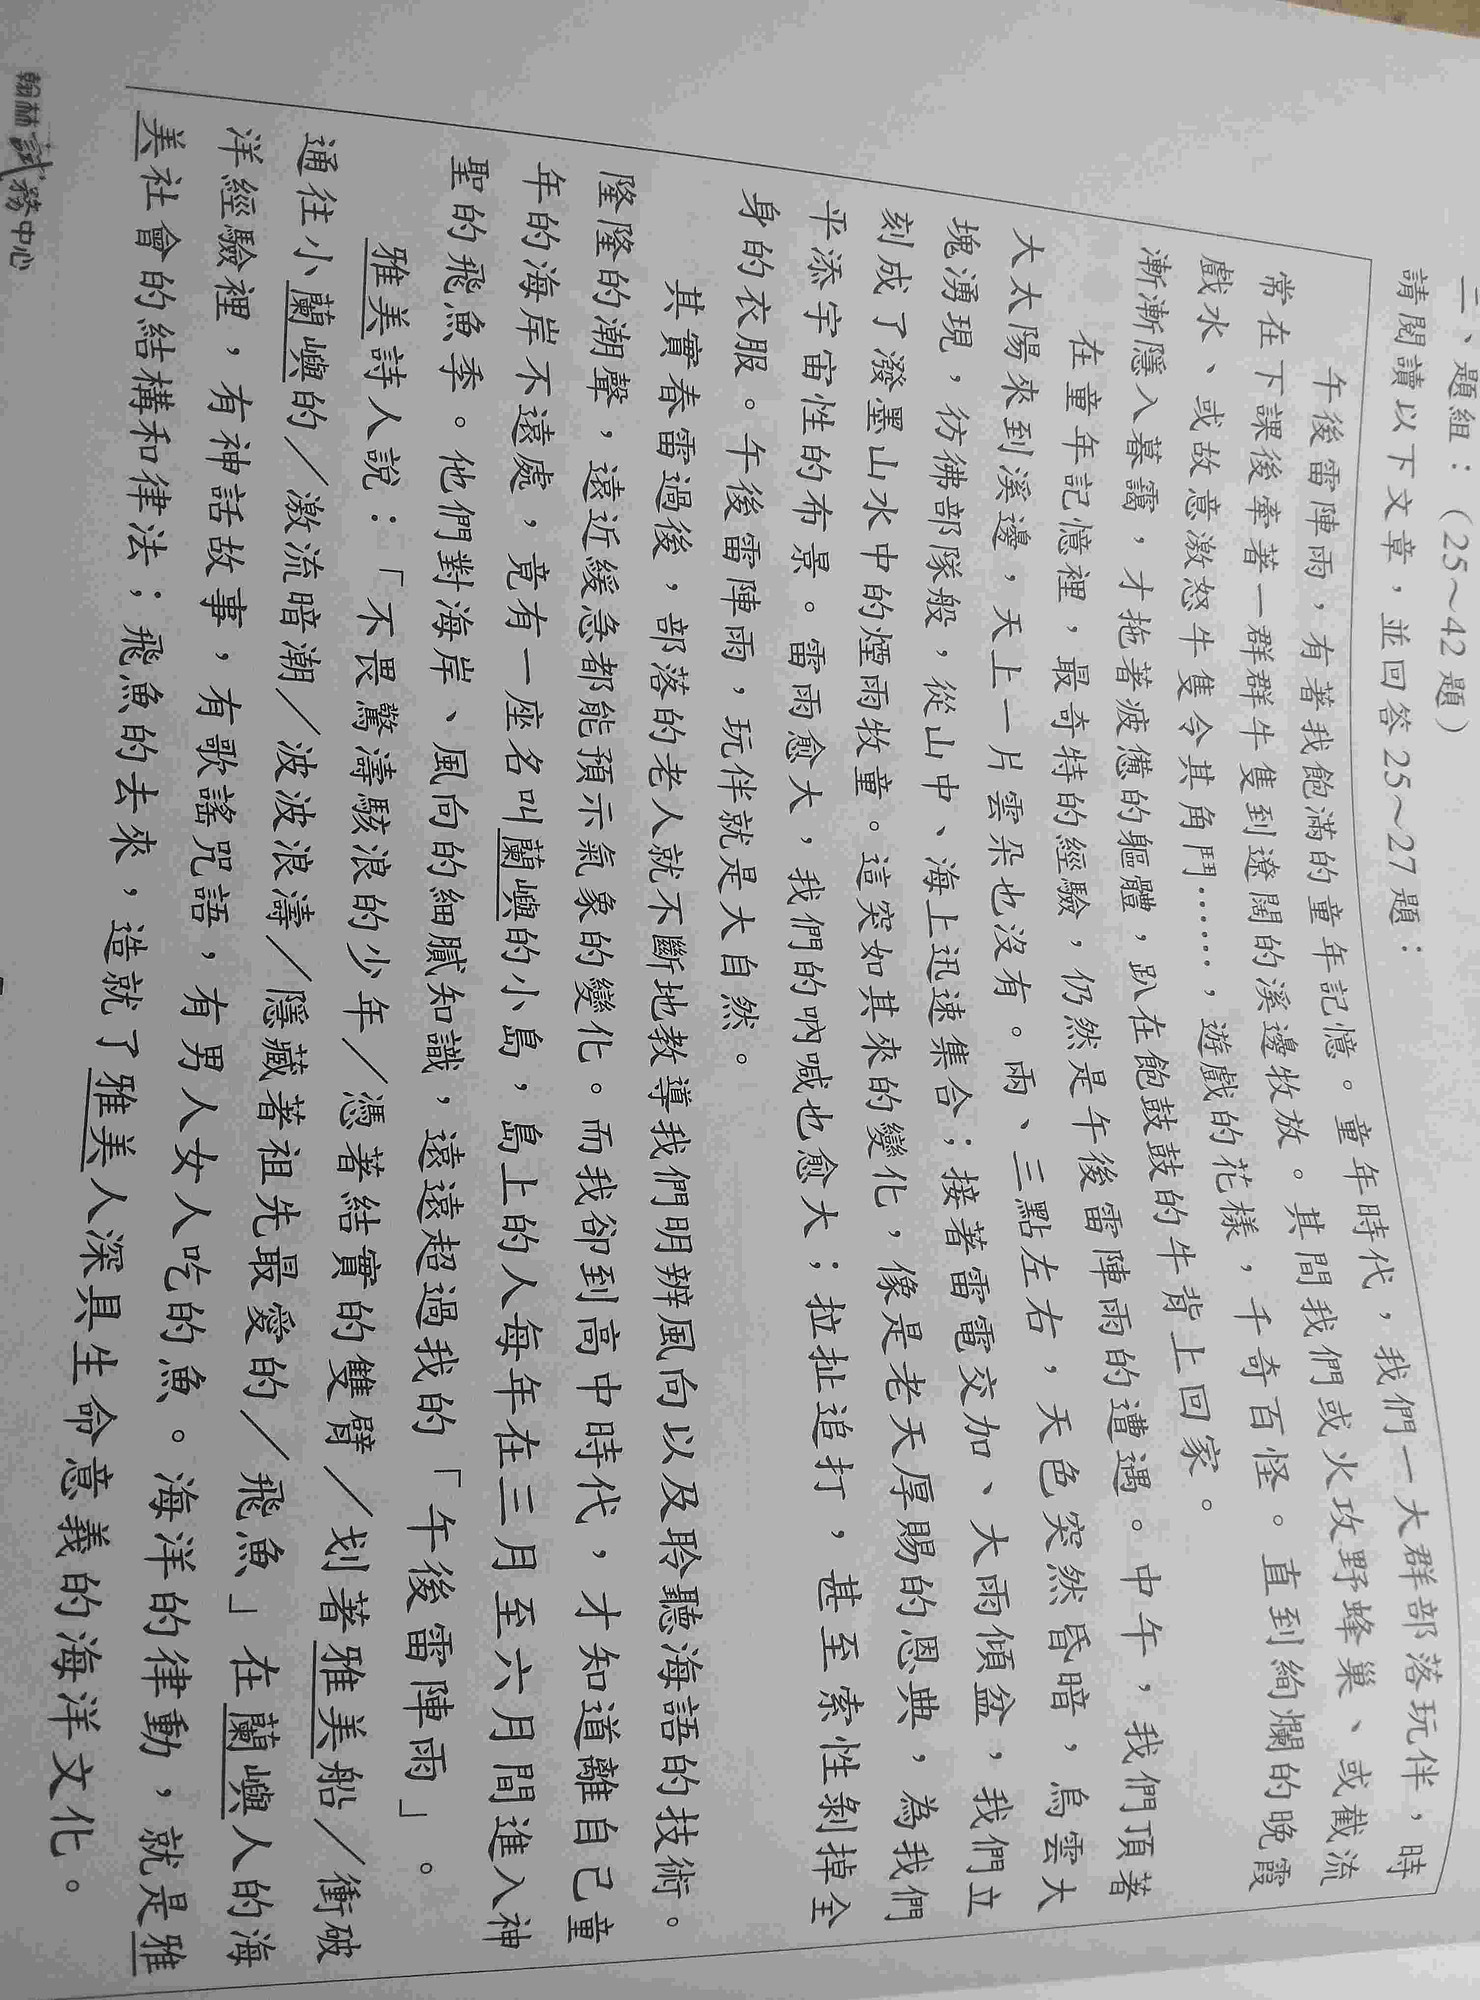 二、題組：（25～42題）
請閱讀以下文章，並回答25～27題：
午後雷陣雨，有著我飽滿的童年記憶。童年時代，我們一大群部落玩伴，時
常在下課後牽著一群群牛隻到遼闊的溪邊牧放。其間我們或火攻野蜂巢、或截流
戲水、或故意激怒牛隻令其角鬥……，遊戲的花樣，千奇百怪。直到絢爛的晚霞
漸漸隱入暮靄，才拖著疲憊的軀體，趴在飽鼓鼓的牛背上回家。
在童年記憶裡，最奇特的經驗，仍然是午後雷陣雨的遭遇。中午，我們頂著
大太陽來到溪邊，天上一片雲朵也沒有。兩、三點左右，天色突然昏暗，烏雲大
塊湧現，彷彿部隊般，從山中、海上迅速集合；接著雷電交加、大雨傾盆，我們立
刻成了潑墨山水中的煙雨牧童。這突如其來的變化，像是老天厚賜的恩典，為我們
平添宇宙性的布景。雷雨愈大，我們的吶喊也愈大；拉扯追打，甚至索性剝掉全
身的衣服。午後雷陣雨，玩伴就是大自然。
其實春雷過後，部落的老人就不斷地教導我們明辨風向以及聆聽海語的技術。
隆隆的潮聲，遠近緩急都能預示氣象的變化。而我卻到高中時代，才知道離自己童
年的海岸不遠處，竟有一座名叫蘭嶼的小島，島上的人每年在三月至六月間進入神
聖的飛魚季。他們對海岸、風向的細膩知識，遠遠超過我的「午後雷陣雨」。
雅美詩人說：「不畏驚濤駭浪的少年／憑著結實的雙臂／划著雅美船／衝破
通往小蘭嶼的／激流暗潮／波波浪濤／隱藏著祖先最愛的／飛魚」在蘭嶼人的海
洋經驗裡，有神話故事，有歌謠咒語，有男人女人吃的魚。海洋的律動，就是雅
美社會的結構和律法；飛魚的去來，造就了雅美人深具生命意義的海洋文化。
翰林試務中心